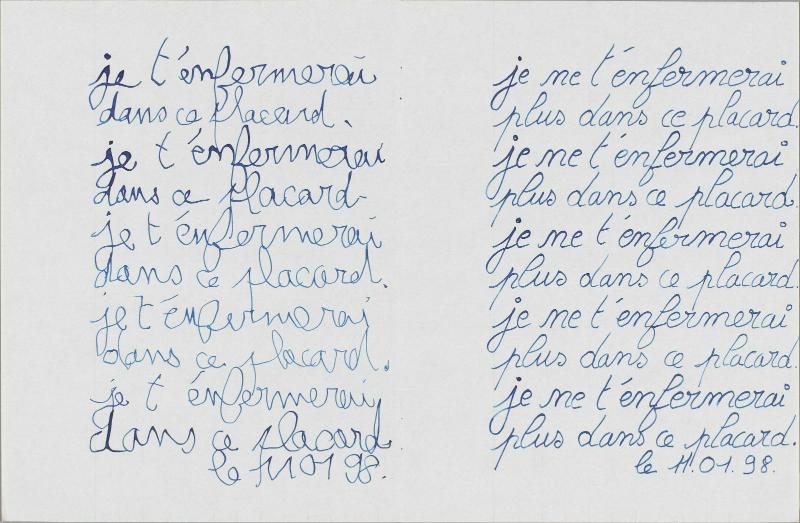 je t'énfermerai
dans ce placard.
je t'énfermerai
dans ce placard-
je t'énfermerai
dans ce placard.
je t'énfermerai
dans ce placard.
je t'énfermerai
dans ce placard
le 11 01 98.
je ne t'énfermerai
plus dans ce placard.
je ne t'énfermerai
plus dans ce placard.
je ne t'énfermerai
plus dans ce placard.
je ne t'énfermerai
plus dans ce placard.
je ne t'énfermerai
plus dans ce placard.
le 11.01.98.